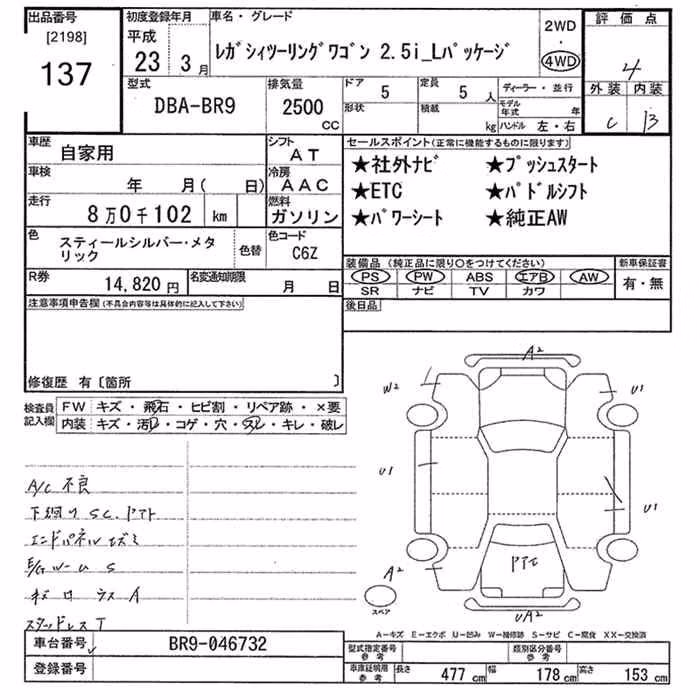 出品番号
[2198]
137
初度登録年月
平成
23年 3月
車名・グレード
レガシィツーリングワゴン 2.5i_Lパッケージ
2WD
・
4WD
評価点
4
外装 内装
C B
型式
DBA-BR9
排気量
2500
CC
ドア
5
形状
定員
5人
積載
kg
ディーラー・並行
モデル年式 年
ハンドル 左・右
車歴
自家用
車検
年 月( 日)
走行
8万0千102 km
シフト
AT
冷房
AAC
燃料
ガソリン
色
スティールシルバー・メタリック
色替
色コード
C6Z
R券
14,820円
名変通知期限
月 日
セールスポイント(正常に機能するものに限ります)
★社外ナビ ★プッシュスタート
★ETC ★パドルシフト
★パワーシート ★純正AW
装備品(純正品に限り○をつけてください)
PS PW ABS エアB AW
SR ナビ TV カワ
新車保証書
有・無
後日品
注意事項申告欄(不具合内容等は具体的に記入して下さい)
修復歴 有〔箇所 〕
検査員記入欄
FW キズ・飛石・ヒビ割・リペア跡・×要
内装 キズ・汚レ・コゲ・穴・スレ・キレ・破レ
A/C 不良
下廻り SC. ドマト
エンドパネル ヒズミ
キズ
スタッドレス T
A2
W2
U1
U1
U1
A2
UA2
スペア
A-キズ E-エクボ U-凹み W-補修跡 S-サビ C-腐食 XX-交換済
車台番号
BR9-046732
登録番号
型式指定番号 参考
類別区分番号 参考
車庫証明用 参考
長さ 477cm 幅 178cm 高さ 153cm